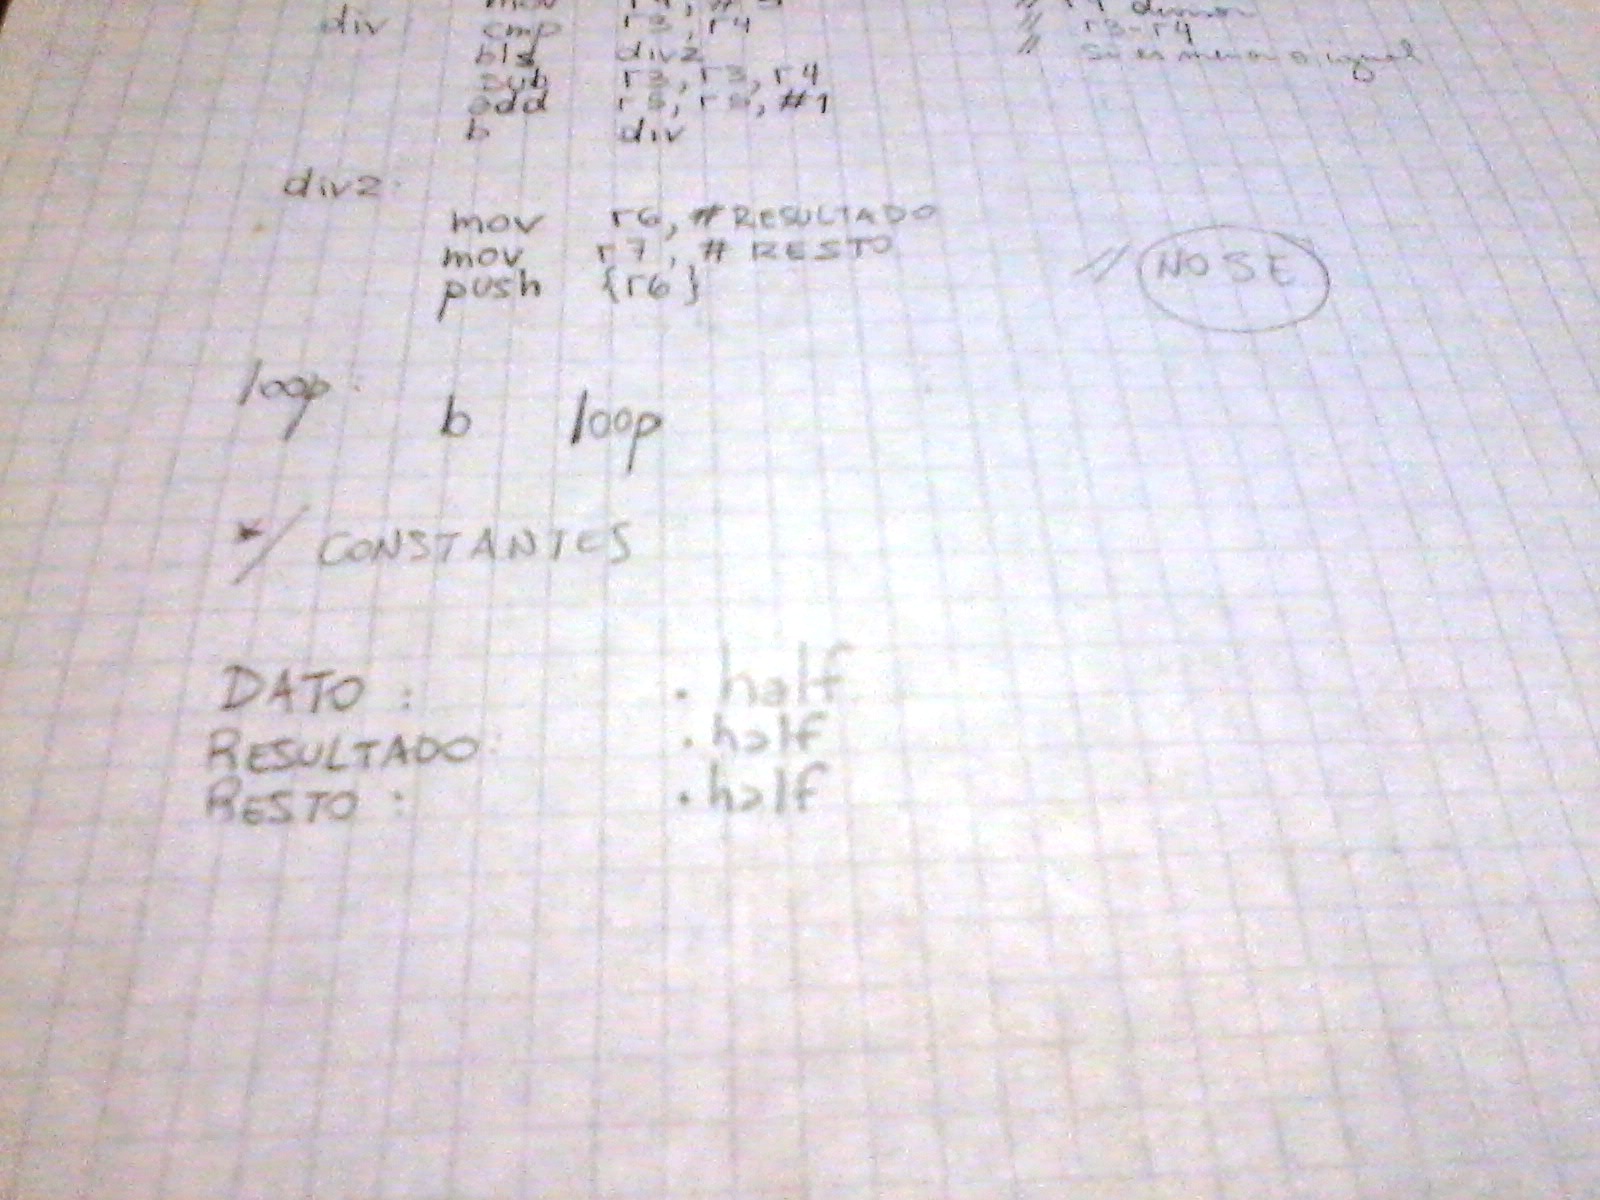 mov r4, #
div cmp r3, r4 // r3-r4
bls div2 // Si es menor o igual
sub r3, r3, r4
add r5, r5, #1
b div
div2:
mov r6, #RESULTADO
mov r7, # RESTO
push {r6} // NO SE
loop:
b loop
*/ CONSTANTES
DATO : .half
RESULTADO: .half
RESTO : .half